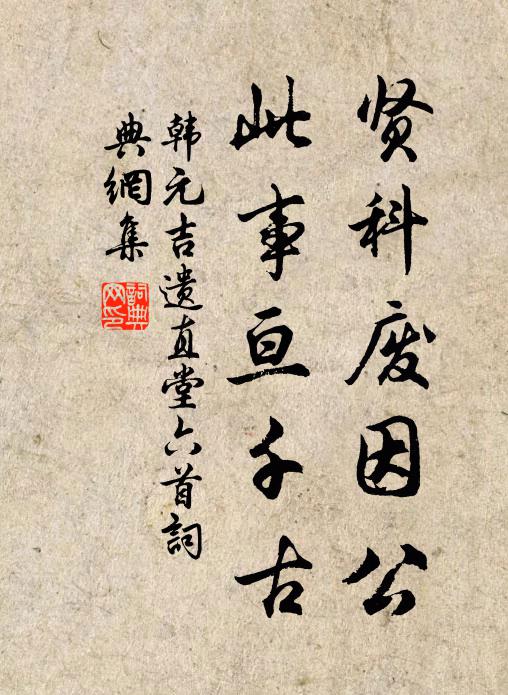 贤科废因公
此事亘千古
韩元吉遗直堂六首词
典網集
詞典網印